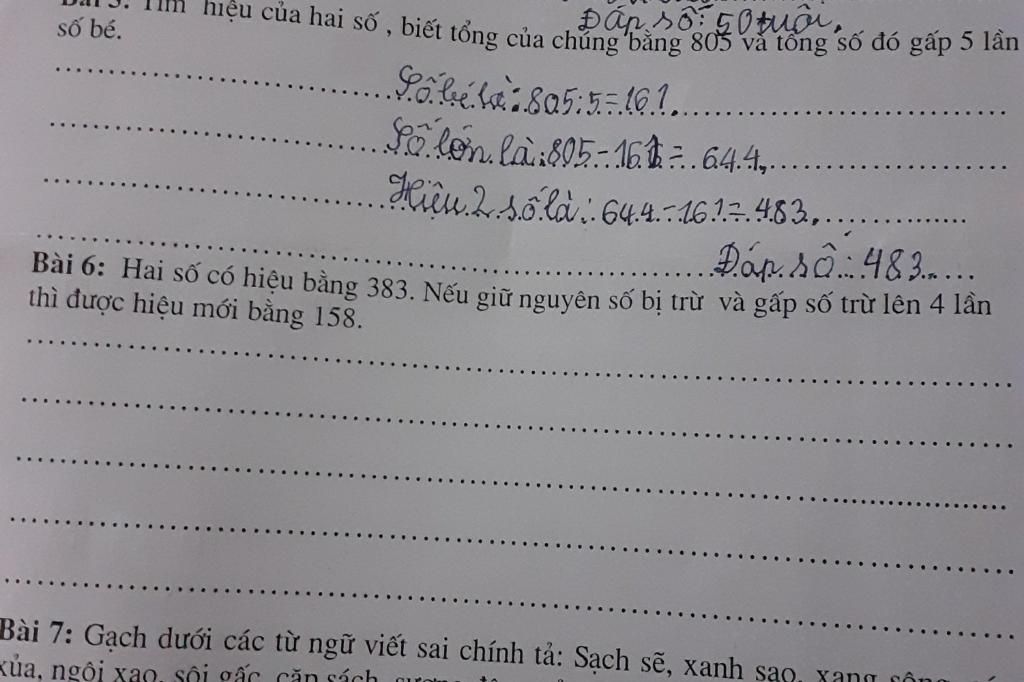 Bài 5: Tìm hiệu của hai số , biết tổng của chúng bằng 805 và tổng số đó gấp 5 lần
Đáp số: 50 tuổi.
số bé.
Số bé là: 805:5=161.
Số lớn là: 805-161= 644.
Hiệu 2 số là: 644-161=483.
Đáp số: 483
Bài 6: Hai số có hiệu bằng 383. Nếu giữ nguyên số bị trừ và gấp số trừ lên 4 lần
thì được hiệu mới bằng 158.
Bài 7: Gạch dưới các từ ngữ viết sai chính tả: Sạch sẽ, xanh sao, xang sông,
xủa, ngôi xao, sôi gấc, căn sách,